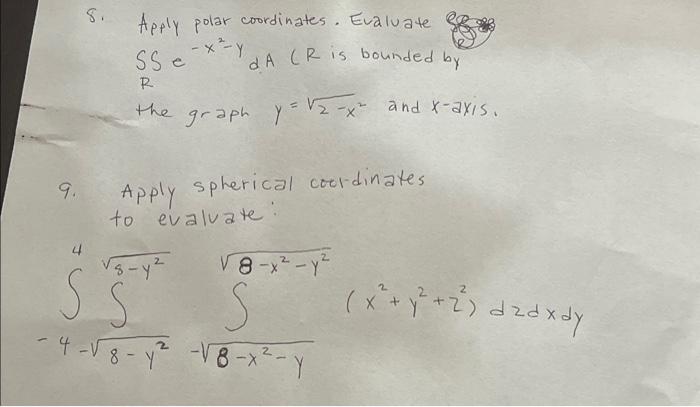 8. Apply polar coordinates. Evaluate
SS e^-x²-y dA (R is bounded by
R
the graph y = √2-x² and x-axis.
9. Apply spherical coordinates
to evaluate:
4 √8-y² √8-x²-y²
∫ ∫ ∫ (x²+y²+z²) dzdxdy
-4 -√8-y² -√8-x²-y